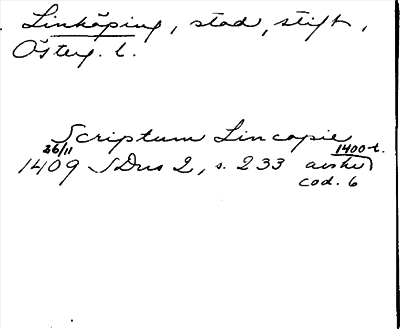 Linköping, stad, stift,
Österg. l.
Scriptum Lincopie
26/11 1400-t.
1409 SDns 2, s. 233 avskr
cod. 6